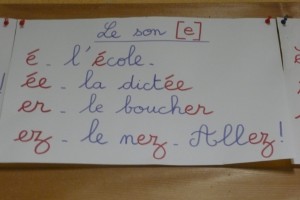 Le son [e]
é - l'école.
ée - la dictée
er - le boucher
ez - le nez - Allez!